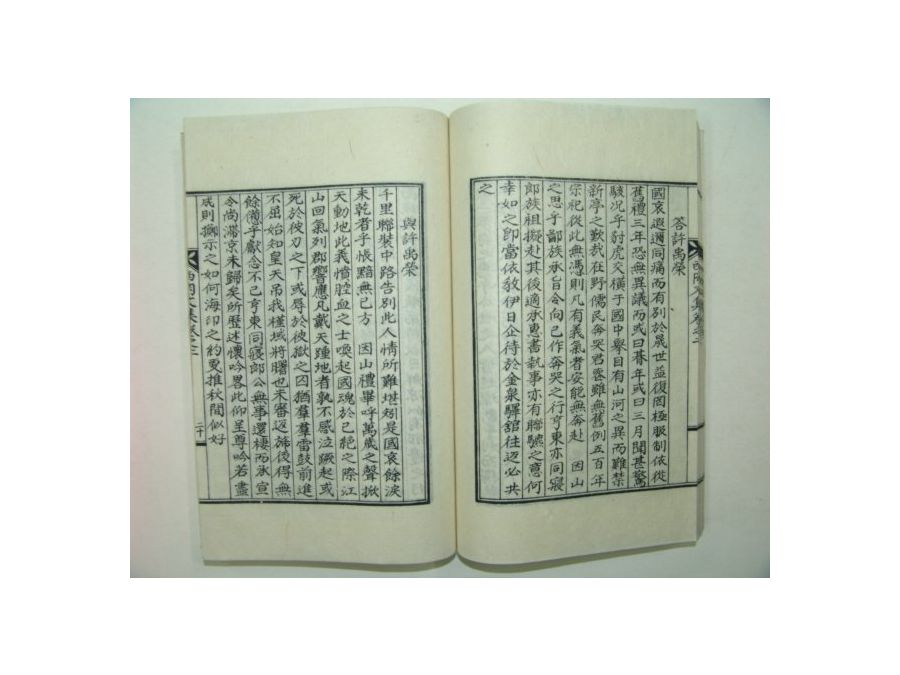 答許禹榮
國哀遐邇同痛而有別於衰世益復罔極服制依從
舊禮三年恐無異議而或曰朞年或曰三月聞甚驚
駭况乎豺虎交橫于國中擧目有山河之異而難禁
新亭之歎哉在野儒民奔哭君喪雖無舊例五百年
宗祀從此無憑則凡有義氣者安能無奔赴 因山
之思乎鄙族承旨令向已作奔哭之行亨東亦同寢
郎族祖擬赴其後適承惠書執事亦有聯驂之意何
幸如之卽當依敎伊日企待於金泉驛舘往迈必共
之
與許禹榮
千里聯裝中路告別此人情所難堪矧是國哀餘淚
未乾者乎悵黯無已方 因山禮畢呼萬歲之聲掀
天動地此義憤腔血之士喚起國魂於已絶之際江
山回氣列郡響應凡戴天踵地者孰不感泣蹶起或
死於彼刃之下或辱於彼獄之囚猶羣羣雷鼓前進
不屈始知皇天弔我槿域將曙也未審返旆後得無
餘憊乎獻念不已亨東同寢郎公無事還棲而承宣
令尚滯京未歸矣所歷述懷吟畧此仰呈尊吟若盡
成則擲示之如何海印之約更推秋間似好
西岡文集卷之二
二十